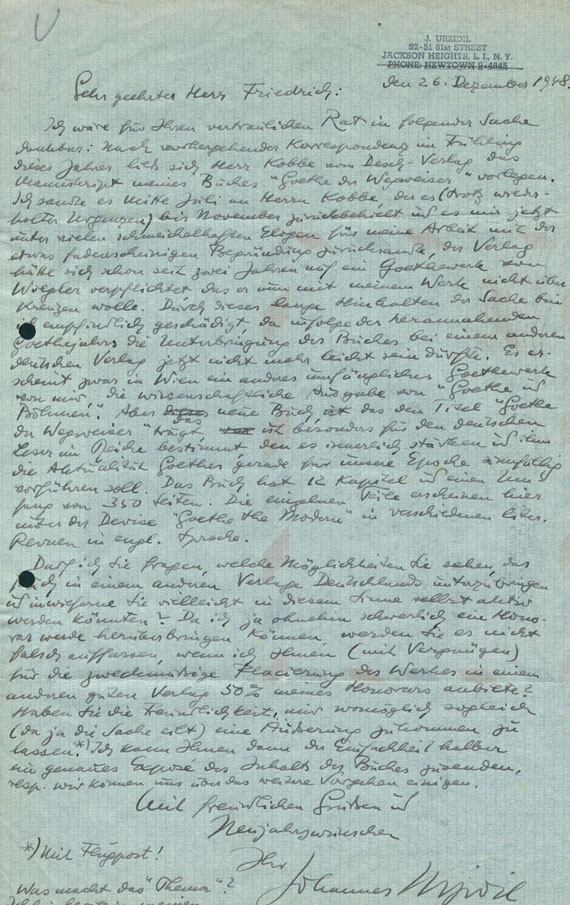 J. URZIDIL
82-51 81st STREET
JACKSON HEIGHTS, L. I., N. Y.
PHONE: NEWTOWN 9-4845
den 26. Dezember 1948.
Sehr geehrter Herr Friedrich:
Ich wäre für Ihren vertraulichen Rat in folgender Sache
dankbar: Nach vorhergehender Korrespondenz im Frühling
dieses Jahres liess sich Herr Kobbe vom Desch-Verlag das
Manuskript meines Buches "Goethe der Wegweiser" vorlegen.
Ich sandte es Mitte Juli an Herrn Kobbe, der es (trotz wieder-
holter Urgenzen) bis November zurückbehielt und es mir jetzt
unter vielen schmeichelhaften Elogen für meine Arbeit mit der
etwas fadenscheinigen Begründung zurücksandte, der Verlag
hätte sich schon seit zwei Jahren auf ein Goethewerk von
verpflichtet das er nun mit meinem Werk nicht über
kreuzen wolle. Durch dieses lange Hinhalten der Sache bin
empfindlich geschädigt, da infolge des herannahenden
Goethejahrs die Unterbringung des Buches bei einem andren
deutschen Verlag jetzt nicht mehr leicht sein dürfte. Es er-
scheint zwar in Wien ein andres umfängliches Goethewerk
von mir, die wissenschaftliche Ausgabe von "Goethe in
Böhmen". Aber das neue Buch das den Titel "Goethe
der Wegweiser" trägt, ist besonders für den deutschen
Leser im Reiche bestimmt, den es innerlich stärken und ihm
die Aktualität Goethes gerade für unsre Epoche sinnfällig
vorführen soll. Das Buch hat 12 Kapitel und einen Um
fang von 350 Seiten. Die einzelnen Teile erscheinen hier
unter der Devise "Goethe the Modern" in verschiedenen liter.
Revuen in engl. Sprache.
Darf ich Sie fragen, welche Möglichkeiten Sie sehen, das
Buch in einem andren Verlage Deutschlands unterzubringen
und inwieferne Sie vielleicht in diesem Sinne selbst aktiv
werden könnten? Da ich ja ohnehin schwerlich ein Hono-
rar werde herüberbringen können, werden Sie es nicht
falsch auffassen, wenn ich Ihnen (mit Vergnügen)
für die zweckmässige Placierung des Werkes in einem
anderen guten Verlag 50% meines Honorars anbiete?
Haben Sie die Freundlichkeit, mir womöglich sogleich
(da ja die Sache eilt) eine Äusserung zukommen zu
lassen.*) Ich kann Ihnen dann der Einfachheit halber
ein genaues Exposé des Inhalts des Buches zusenden,
resp. wir können uns über das weitere Vorgehen einigen.
Mit freundlichen Grüssen und
Neujahrswünschen
Ihr
Johannes Urzidil
*) Mit Flugpost!
Was macht das "Thema"?